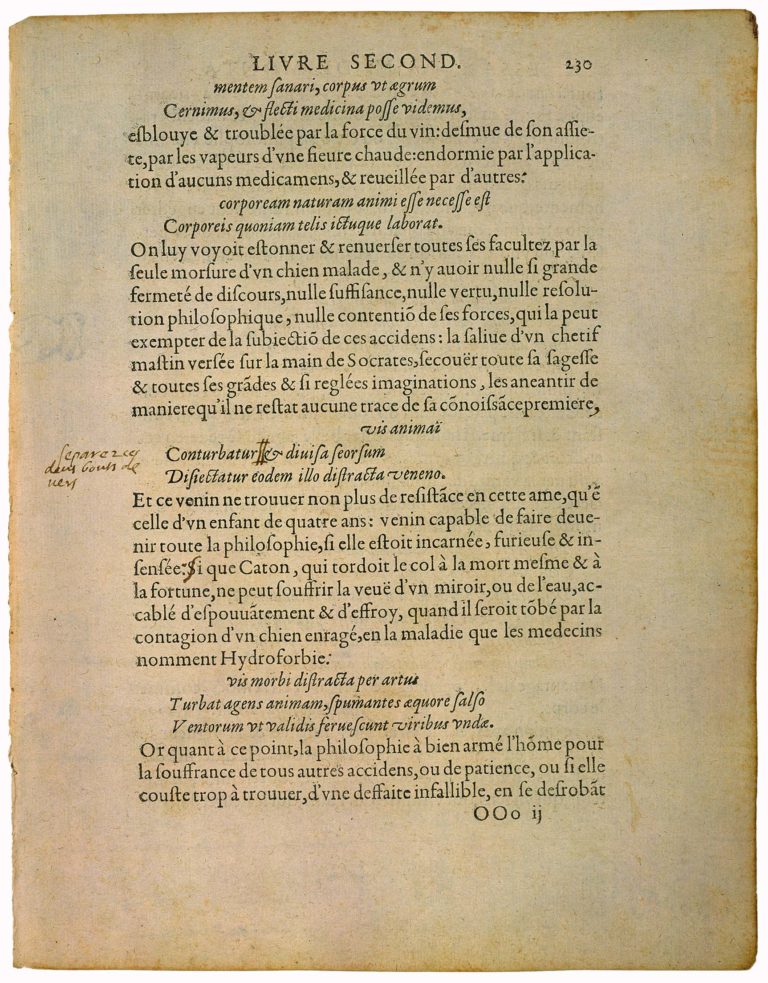 LIVRE SECOND. 230
mentem ſanari, corpus vt ægrum
Cernimus, & flecti medicina poſſe videmus,
eſblouye & troublée par la force du vin: deſmue de ſon aſſie-
te, par les vapeurs d'vne fieure chaude: endormie par l'applica-
tion d'aucuns medicamens, & reueillée par d'autres:
corpoream naturam animi eſſe neceſſe eſt
Corporeis quoniam telis ictuque laborat.
On luy voyoit eſtonner & renuerſer toutes ſes facultez par la
ſeule morſure d'vn chien malade, & n'y auoir nulle ſi grande
fermeté de diſcours, nulle ſuffiſance, nulle vertu, nulle reſolu-
tion philoſophique, nulle contentiõ de ſes forces, qui la peut
exempter de la ſubiectiõ de ces accidens: la ſaliue d'vn chetif
maſtin verſée ſur la main de Socrates, ſecouër toute ſa ſageſſe
& toutes ſes grãdes & ſi reglées imaginations, les aneantir de
maniere qu'il ne reſtat aucune trace de ſa cõnoiſſãce premiere,
vis animaï
separez ces Conturbatur || & diuiſa ſeorſum
deus bouts de Diſiectatur eodem illo diſtracta veneno.
vers
Et ce venin ne trouuer non plus de reſiſtãce en cette ame, qu'ẽ
celle d'vn enfant de quatre ans: venin capable de faire deue-
nir toute la philoſophie, ſi elle eſtoit incarnée, furieuſe & in-
ſenſée: Si que Caton, qui tordoit le col à la mort meſme & à
la fortune, ne peut ſouffrir la veuë d'vn miroir, ou de l'eau, ac-
cablé d'eſpouuãtement & d'effroy, quand il ſeroit tõbé par la
contagion d'vn chien enragé, en la maladie que les medecins
nomment Hydroforbie:
vis morbi diſtracta per artus
Turbat agens animam, ſpumantes æquore ſalſo
Ventorum vt validis ferueſcunt viribus vndæ.
Or quant à ce point, la philoſophie à bien armé l'hõme pour
la ſouffrance de tous autres accidens, ou de patience, ou ſi elle
couſte trop à trouuer, d'vne deffaite infallible, en ſe deſrobãt
OOo ij